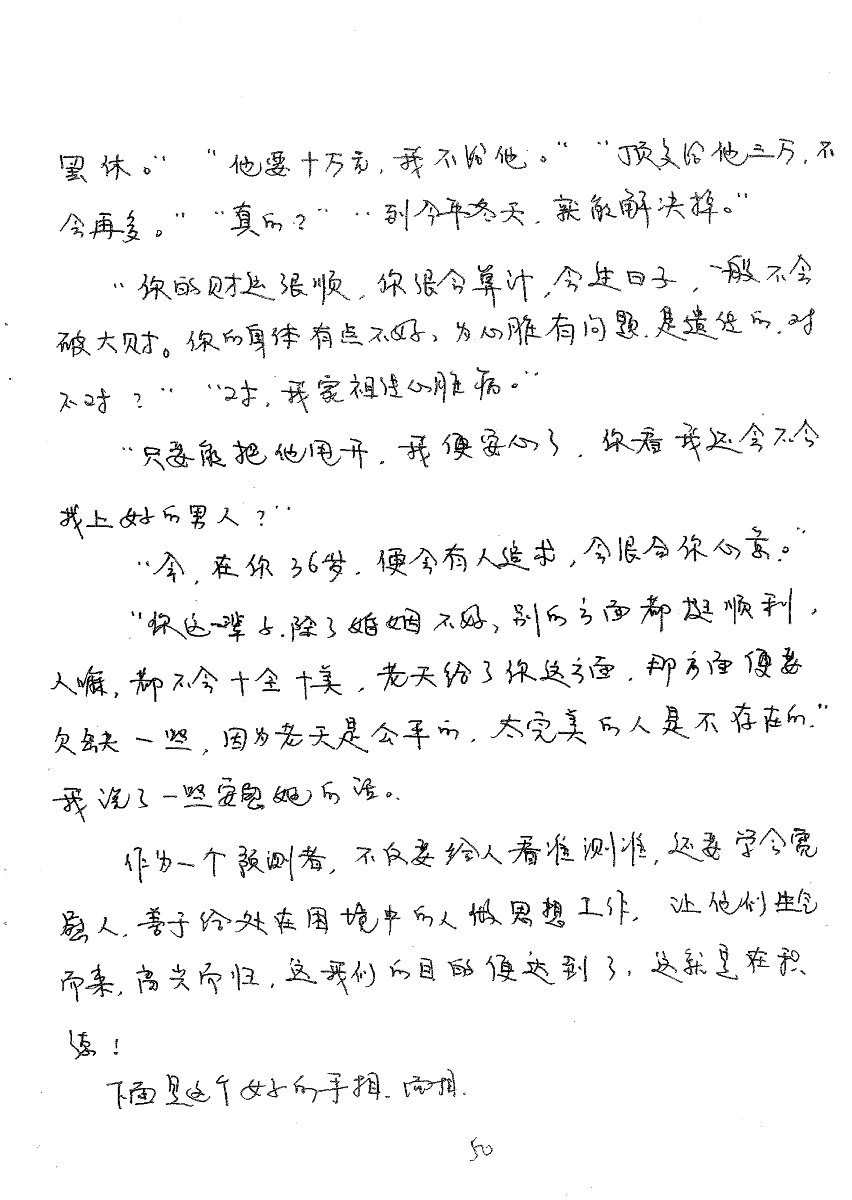 罢休。” “他要十万元，我不给他。” “顶多给他三万，不
会再多。” “真的？” “到今年冬天，就能解决掉。”
“你的财运很顺，你很会算计，会过日子，一般不会
破大财。你的身体有点不好，为心脏有问题，是遗传的，对
不对？” “对，我家祖传心脏病。”
“只要能把他甩开，我便安心了，你看我还会不会
找上好的男人？”
“会，在你36岁，便会有人追求，会很合你心意。”
“你这一辈子，除了婚姻不好，别的方面都挺顺利，
人嘛，都不会十全十美，老天给了你这方面，那方面便要
欠缺一些，因为老天是公平的，太完美的人是不存在的。”
我说了一些安慰她的话。
作为一个预测者，不仅要给人看准测准，还要学会宽
慰人，善于给处在困境中的人做思想工作，让他们生气
而来，高兴而归，这我们的目的便达到了，这就是在积
德！
下面是这个女子的手相、面相.
50